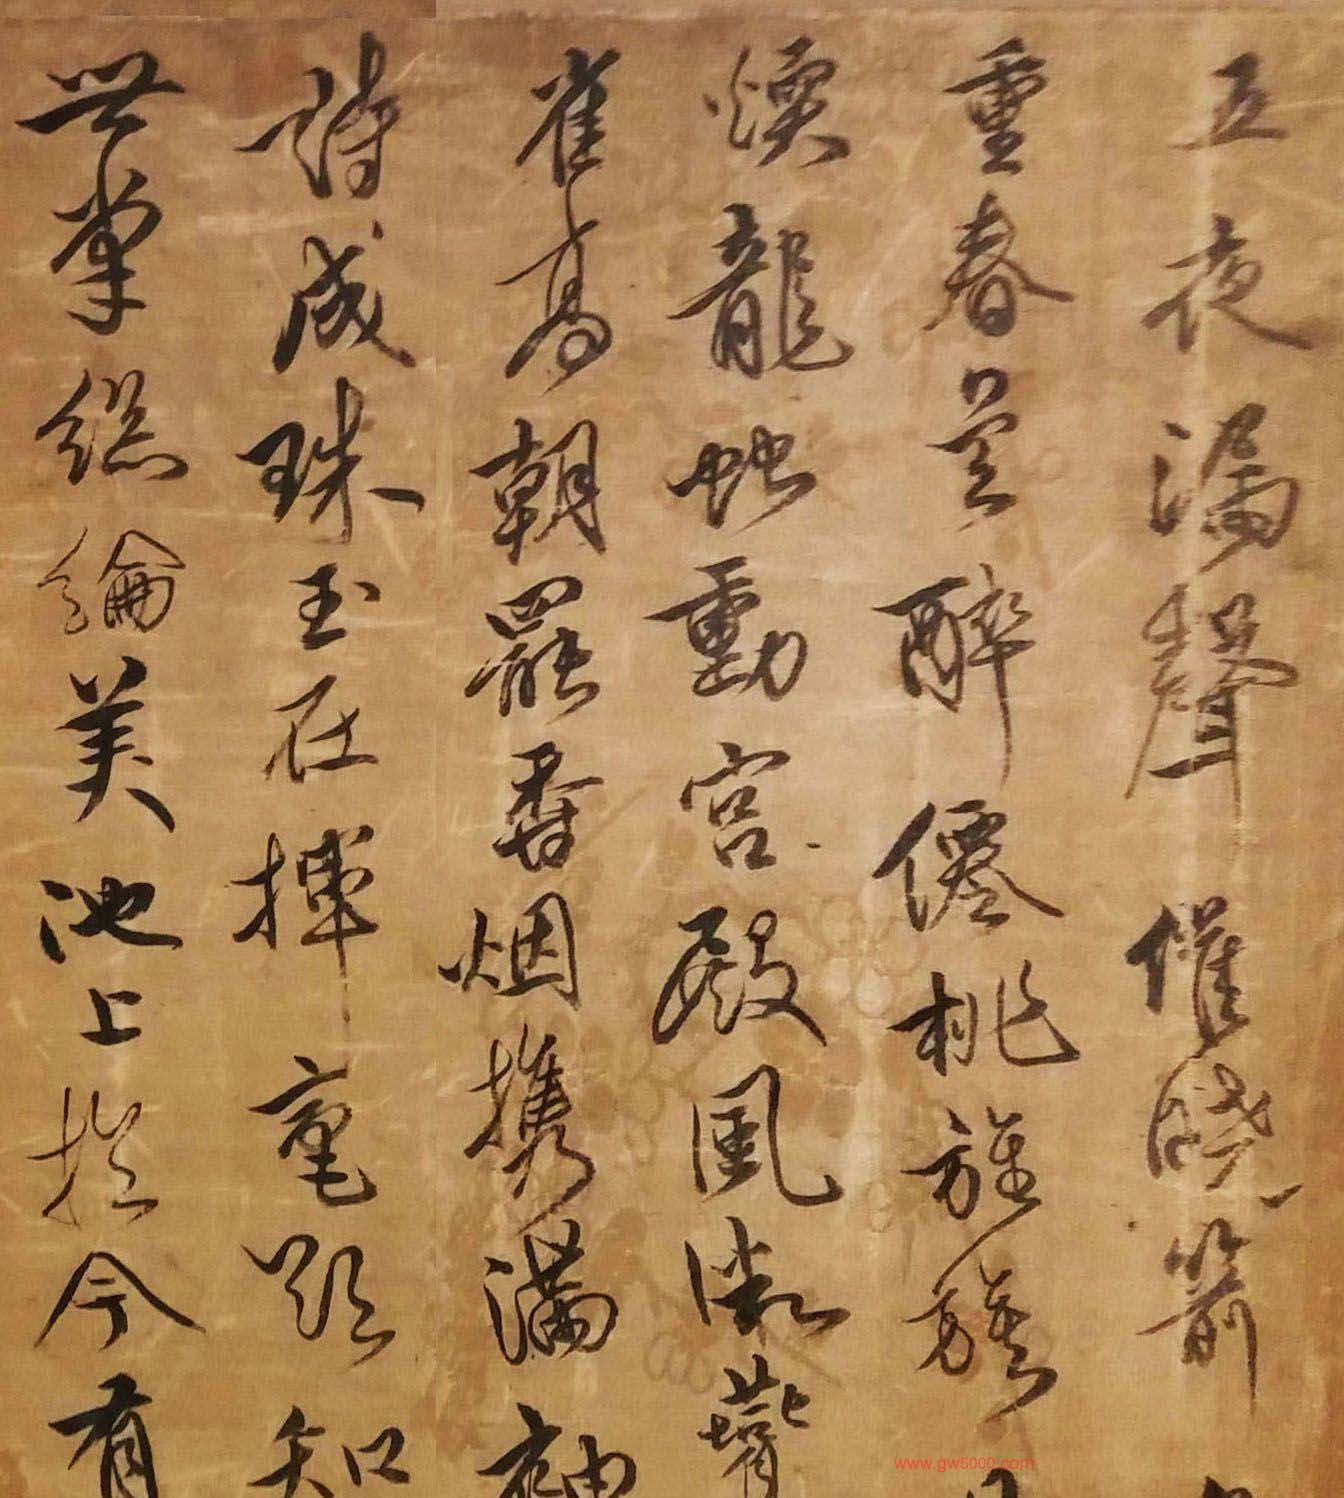 五夜漏聲催曉箭
重春色醉僊桃旌旗
煖龍虵動宮殿風微燕
雀高朝罷香烟携滿袖
詩成珠玉在揮毫欲知
世掌絲綸美池上於今有
www.gw5000.com